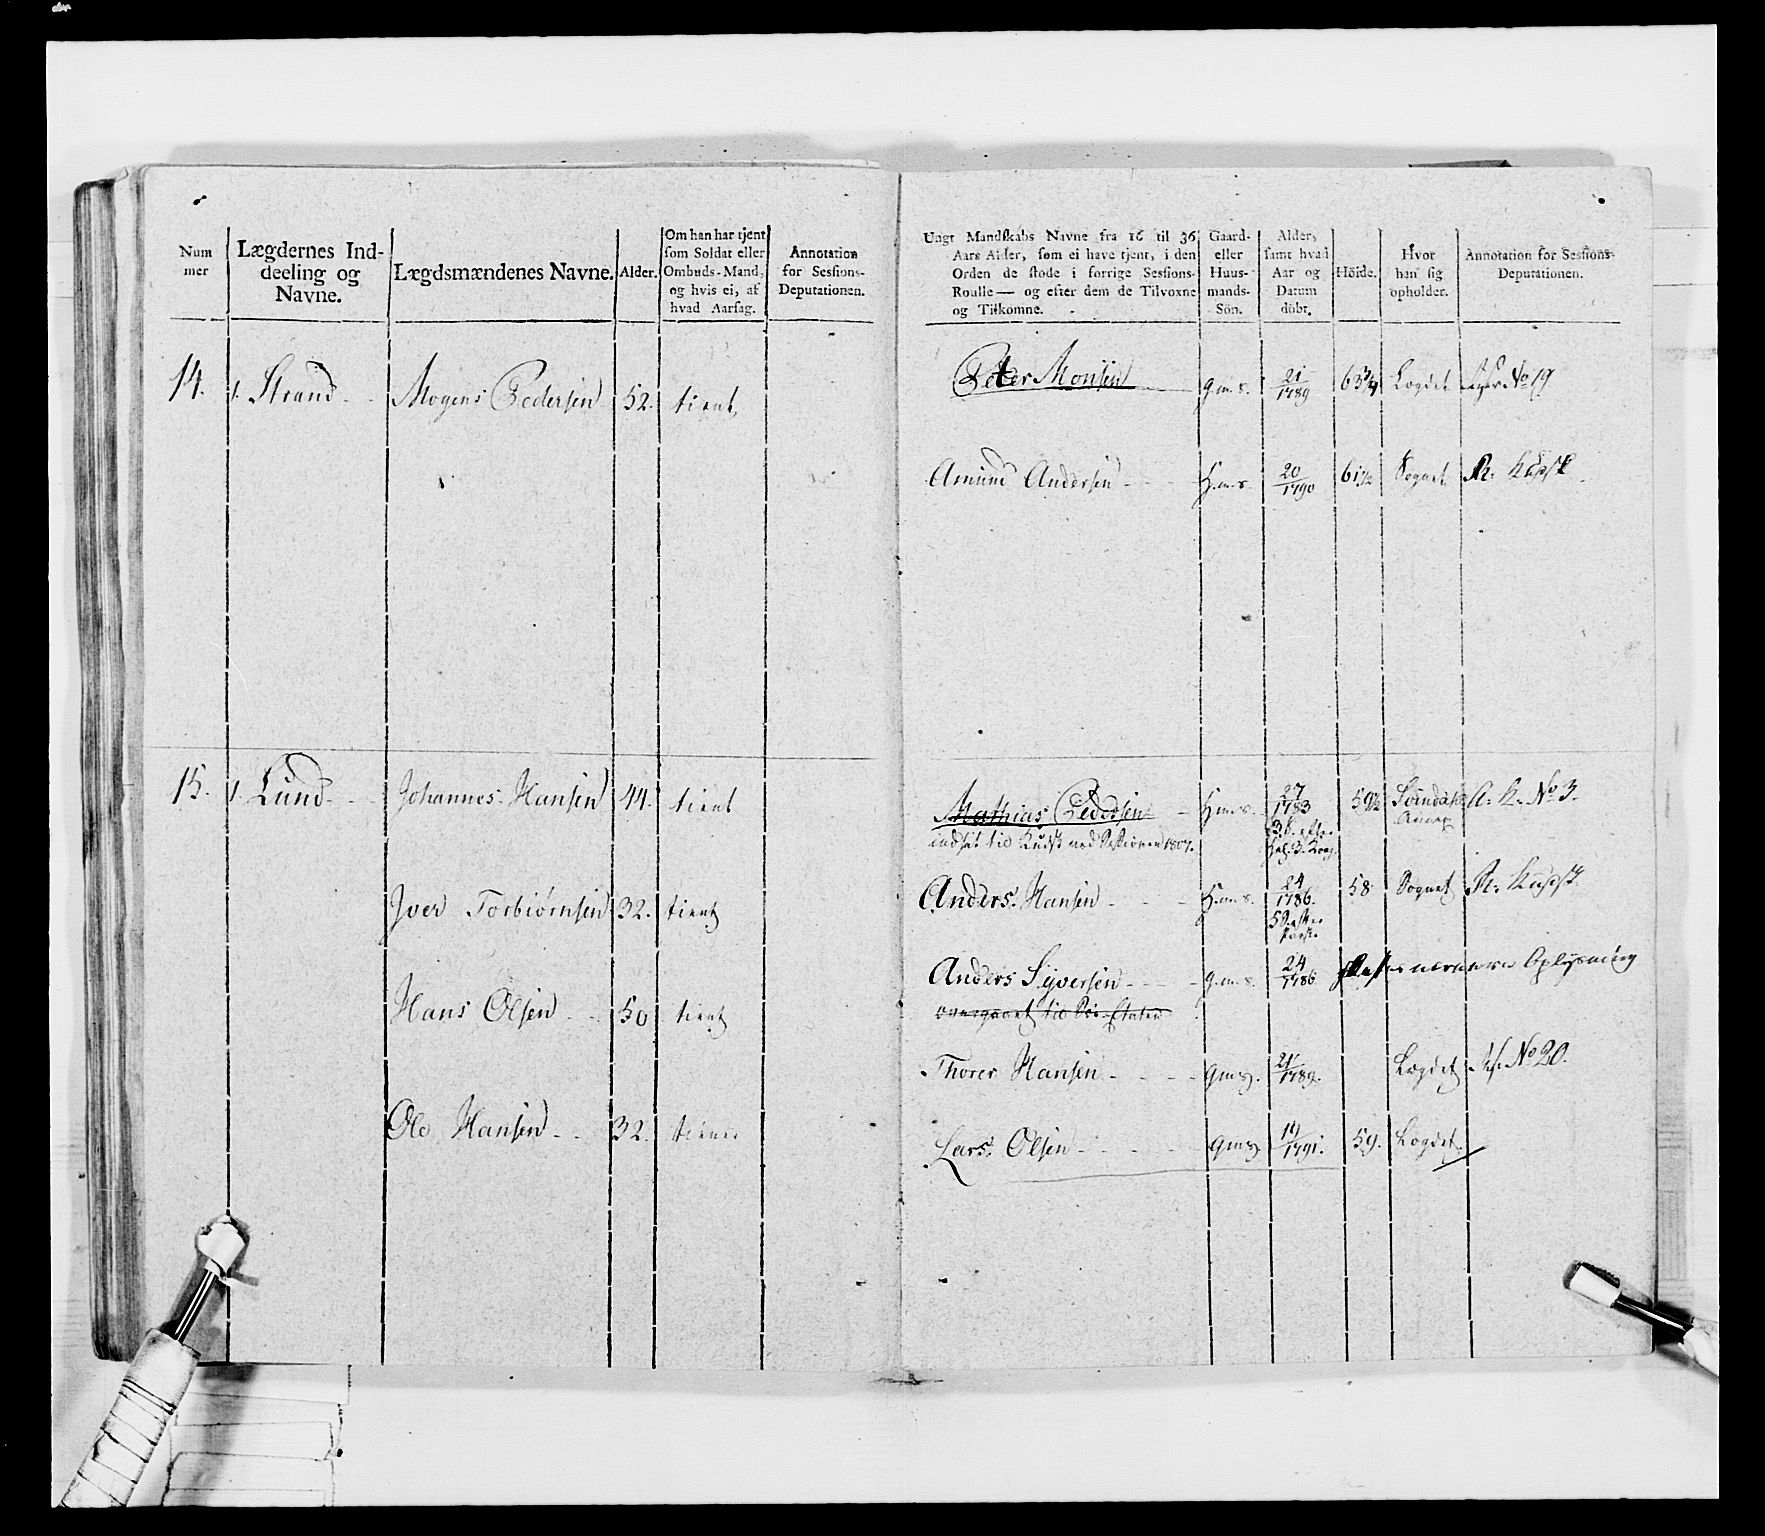 Num
mer
Lægdernes Ind-
deeling og
Navne.
Lægdsmændenes Navne.
Alder.
Om han har tjent
som Soldat eller
Ombuds-Mand,
og hvis ei, af
hvad Aarsag.
Annotation
for Sessions-
Deputationen.
14. 1. Strand Mogens Pedersen 52. tient
15. 1. Lund Johannes Hansen 44. tient
Iver Torbiörnsen 32. tient
Hans Olsen 50 tient
Ole Hansen 32. tiener
Ungt Mandskabs Navne fra 16 til 36
Aars Alder, som ei have tjent, i den
Orden de stode i forrige Sessions-
Roulle — og efter dem de Tilvoxne
og Tilkomne.
Gaard-
eller
Huus-
mands-
Sön.
Alder,
samt hvad
Aar og
Datum
döbt.
Höide.
Hvor
han sig
opholder.
Annotation for Sessions-
Deputationen.
Peter Monsen g.m.s. 21/1789 63 3/4 Lægdet No 19
Amund Andersen H.m.s. 20/1790 61 1/2 Sognet R. Kudsk
Mathias Pedersen H.m.s. 27/1783 59 1/2 A. K. No 3.
Annex
indsat til Kudsk ved Sessionen 1807.
Anders Hansen H.m.s. 24/1786. 58 Sognet R. Kudsk
Anders Syversen g.m.s. 24/1786 nærmere Oplysning
overgaaet til Söe-Etaten
Thorer Hansen gms. 21/1789. Lægdet No 20.
Lars Olsen gms. 19/1791. 59. Lægdet